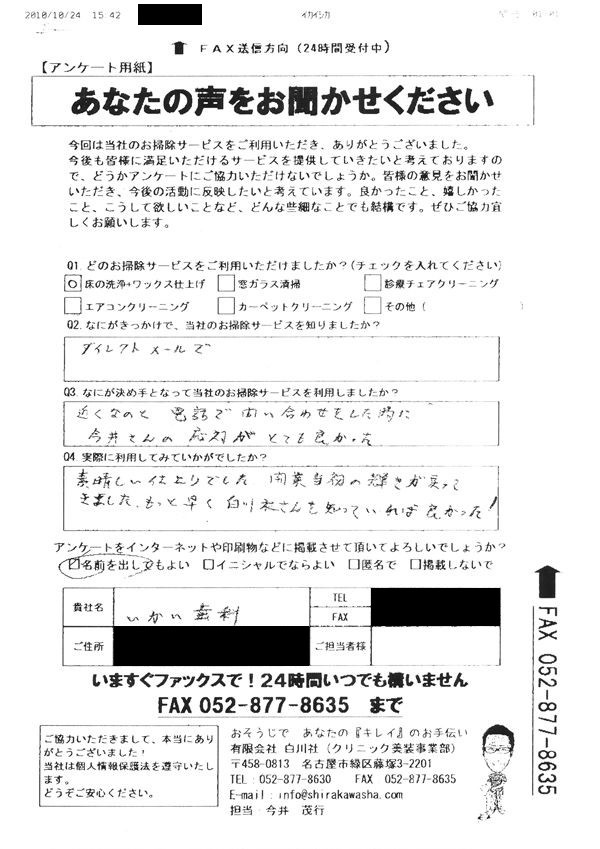 2010/10/24 15:42 イカイシカ
FAX送信方向(24時間受付中)
【アンケート用紙】
あなたの声をお聞かせください
今回は当社のお掃除サービスをご利用いただき、ありがとうございました。
今後も皆様に満足いただけるサービスを提供していきたいと考えておりますの
で、どうかアンケートにご協力いただけないでしょうか。皆様の意見をお聞かせ
いただき、今後の活動に反映したいと考えています。良かったこと、嬉しかった
こと、こうして欲しいことなど、どんな些細なことでも結構です。ぜひご協力宜
しくお願いします。
Q1. どのお掃除サービスをご利用いただけましたか?(チェックを入れてください)
床の洗浄+ワックス仕上げ 窓ガラス清掃 診療チェアクリーニング
エアコンクリーニング カーペットクリーニング その他(
Q2. なにがきっかけで、当社のお掃除サービスを知りましたか?
ダイレクトメールで
Q3. なにが決め手となって当社のお掃除サービスを利用しましたか?
近くなのと 電話で問い合わせをした時に
今井さんの応対がとても良かった
Q4. 実際に利用してみていかがでしたか?
素晴しい仕上りでした 開業当初の輝きが戻って
きました、もっと早く白川社さんを知っていれば良かった!
アンケートをインターネットや印刷物などに掲載させて頂いてよろしいでしょうか?
名前を出してもよい イニシャルでならよい 匿名で 掲載しないで
貴社名 いかい歯科 TEL
FAX
ご住所 ご担当者様
いますぐファックスで!24時間いつでも構いません
FAX 052-877-8635 まで
ご協力いただきまして、本当にあり
がとうございました!
当社は個人情報保護法を遵守いたし
ます。
どうぞご安心ください。
おそうじで あなたの『キレイ』のお手伝い
有限会社 白川社(クリニック美装事業部)
〒458-0813 名古屋市緑区藤塚3-2201
TEL:052-877-8630 FAX 052-877-8635
E-mail:info@shirakawasha.com
担当:今井 茂行
FAX 052-877-8635